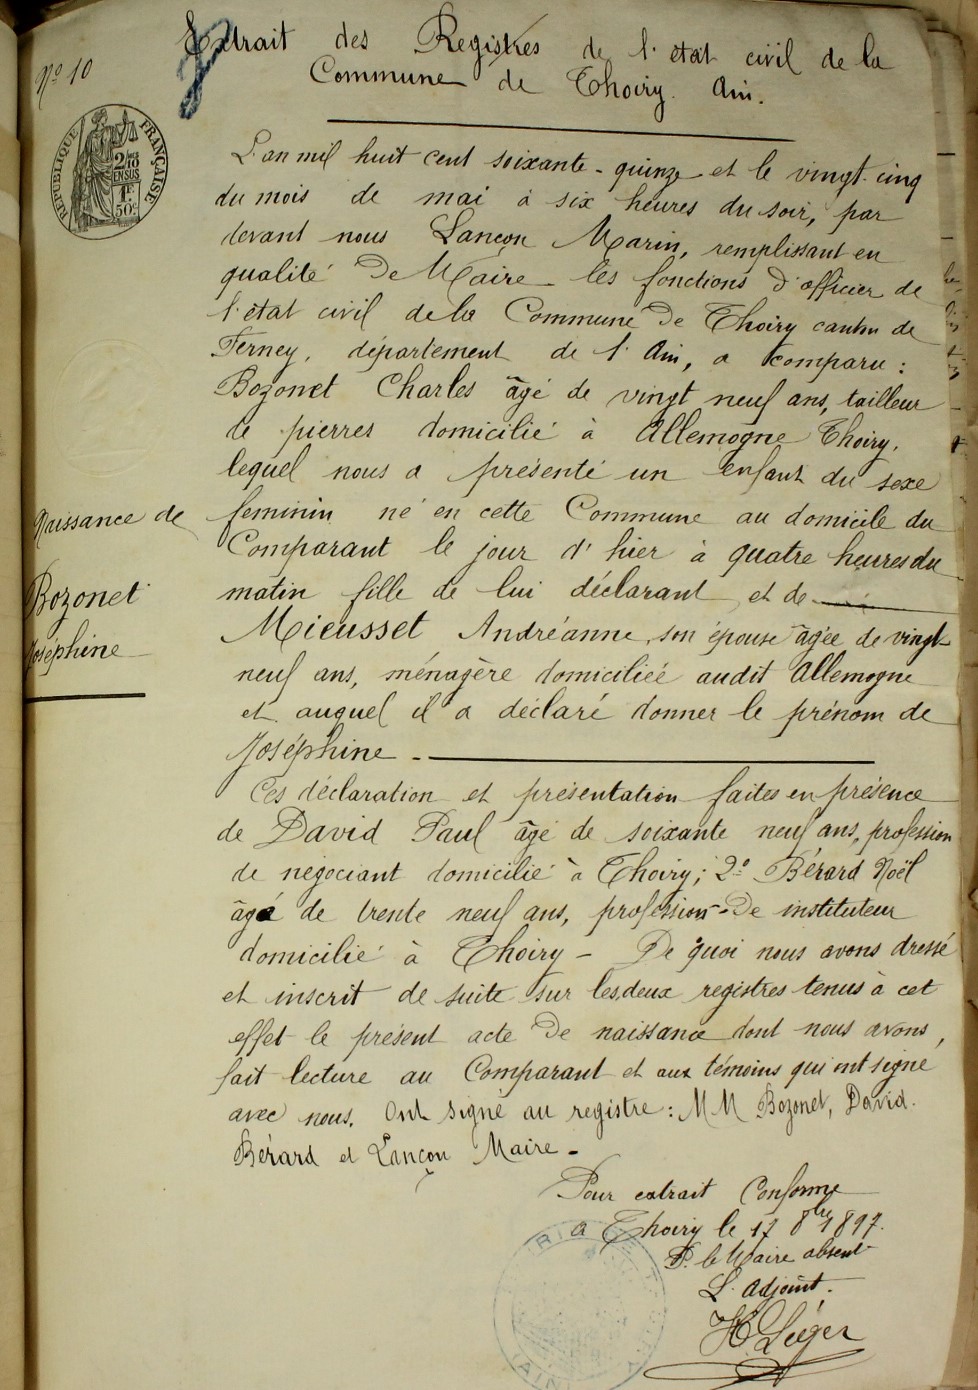 Extrait des Registres de l'état civil de la
Commune de Thoiry. Ain.
Nº 10
RÉPUBLIQUE FRANÇAISE
2/10
EN SUS
1F.
50c
L'an mil huit cent soixante-quinze et le vingt-cinq
du mois de mai à six heures du soir, par
devant nous Lançon Marin, remplissant en
qualité de Maire les fonctions d'officier de
l'état civil de la Commune de Thoiry canton de
Ferney, département de l'Ain, a comparu :
Bozonet Charles âgé de vingt neuf ans, tailleur
de pierres domicilié à Allemogne Thoiry,
lequel nous a présenté un enfant du sexe
feminin né en cette Commune au domicile du
Comparant le jour d'hier à quatre heures du
matin fille de lui déclarant et de
Mieusset Andréanne, son épouse âgée de vingt
neuf ans, ménagère domiciliée audit Allemogne
et auquel il a déclaré donner le prénom de
Joséphine -
Naissance de
Bozonet
Joséphine
Ces déclaration et présentation faites en présence
de David Paul âgé de soixante neuf ans, profession
de négociant domicilié à Thoiry; 2º Bérard Noël
âgé de trente neuf ans, profession de instituteur
domicilié à Thoiry - De quoi nous avons dressé
et inscrit de suite sur les deux registres tenus à cet
effet le présent acte de naissance dont nous avons,
fait lecture au Comparant et aux témoins qui ont signé
avec nous. Ont signé au registre : MM Bozonet, David.
Bérard et Lançon Maire -
Pour extrait Conforme
a Thoiry le 17 8bre 1897.
P. le Maire absent
L'Adjoint.
H Léger